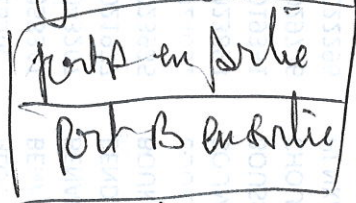 port A en sortie
port B en sortie